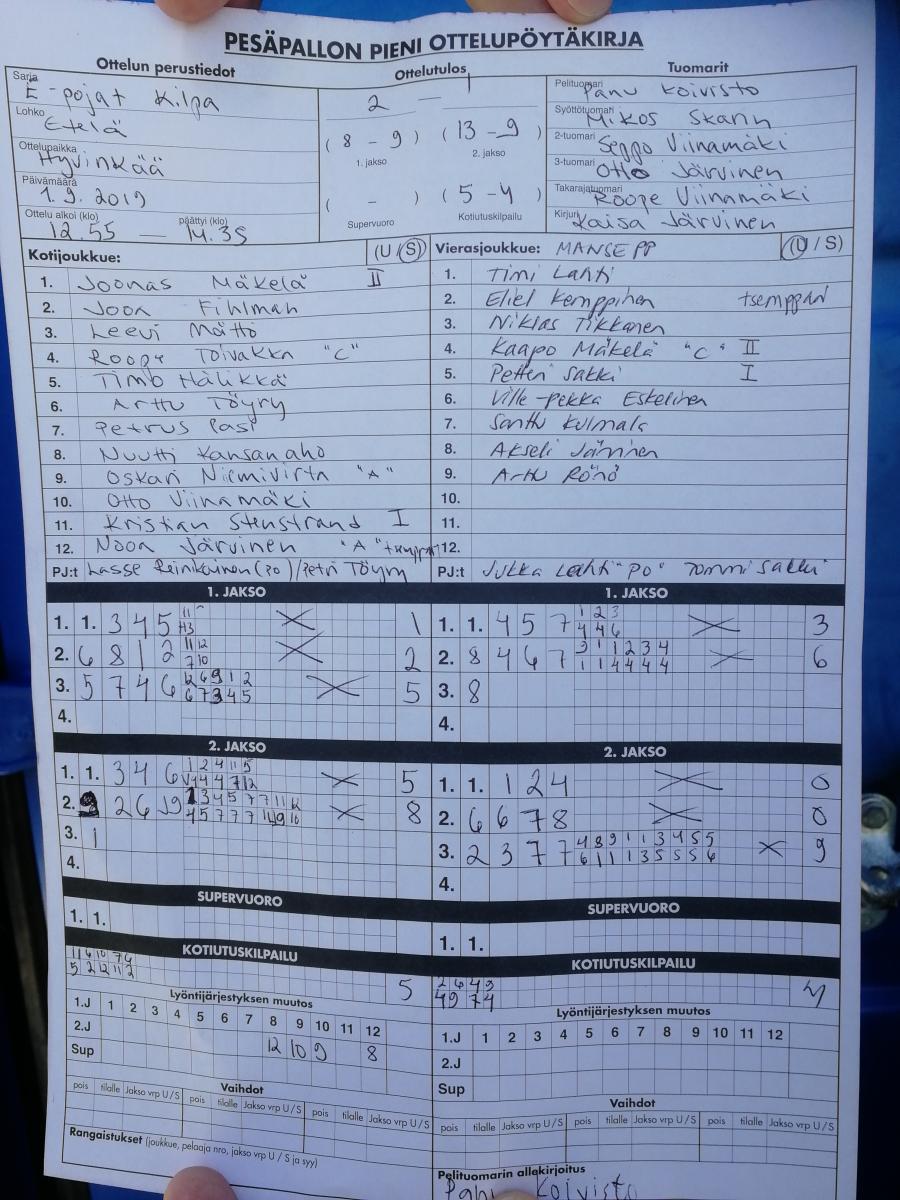 PESÄPALLON PIENI OTTELUPÖYTÄKIRJA
Ottelun perustiedot
Sarja
E-pojat Kilpa
Lohko
Etelä
Ottelupaikka
Hyvinkää
Päivämäärä
1.9.2019
Ottelu alkoi (klo) päättyi (klo)
12.55 — 14.35
Ottelutulos
2 — 1
( 8 - 9 ) ( 13 - 9 )
1. jakso 2. jakso
( - ) ( 5 - 4 )
Supervuoro Kotiutuskilpailu
Tuomarit
Pelituomari Panu Koivisto
Syöttötuomari Mikos Skarin
2-tuomari Seppo Viinamäki
3-tuomari Otto Järvinen
Takarajatuomari Roope Viinamäki
Kirjuri Kaisa Järvinen
Kotijoukkue: (U / S)
1. Joonas Mäkelä II
2. Joon Fihlman
3. Leevi Mättö
4. Roope Toivakka "C"
5. Timo Hälikkä
6. Arttu Töyry
7. Petrus Pasi
8. Nuutti Kansanaho
9. Oskari Niemivirta "A"
10. Otto Viinamäki
11. Kristian Stenstrand I
12. Noon Järvinen "A" tsemppari
PJ:t Lasse Reinikainen (PO) / Petri Töyry
Vierasjoukkue: MANSE PP (U / S)
1. Timi Lahti
2. Eliel Kemppinen tsemppari
3. Niklas Tikkanen
4. Kaapo Mäkelä "C" II
5. Petteri Sakki I
6. Ville-Pekka Eskelinen
7. Santtu Kulmala
8. Akseli Järvinen
9. Arttu Rönö
10.
11.
12.
PJ:t Jukka Lahti "PO" Tommi Sakki
1. JAKSO
1. 1. 3 4 5 1
2. 6 8 1 2 2
3. 5 7 4 6 5
4.
2. JAKSO
1. 1. 3 4 6 5
2. 9 2 6 8
3. 1
4.
SUPERVUORO
1. 1.
KOTIUTUSKILPAILU
11 6 10 7 6
5 2 12 11 2
5
Lyöntijärjestyksen muutos
1.J 1 2 3 4 5 6 7 8 9 10 11 12
2.J 12 10 9 8
Sup
Vaihdot
pois tilalle Jakso vrp U / S pois tilalle Jakso vrp U / S pois tilalle Jakso vrp U / S
Rangaistukset (joukkue, pelaaja nro, jakso vrp U / S ja syy)
1. JAKSO
1. 1. 4 5 7 3
1 2 3
4 4 6
2. 8 4 6 7 6
3 1 1 2 3 4
1 1 4 4 4 4
3. 8
4.
2. JAKSO
1. 1. 1 2 4 0
2. 6 6 7 8 0
3. 2 3 7 7 9
4 8 9 1 1 3 4 5 5
6 1 1 1 3 5 5 5 6
4.
SUPERVUORO
1. 1.
KOTIUTUSKILPAILU
2 6 4 9
49 7 4
4
Lyöntijärjestyksen muutos
1.J 1 2 3 4 5 6 7 8 9 10 11 12
2.J
Sup
Vaihdot
pois tilalle Jakso vrp U / S pois tilalle Jakso vrp U / S pois tilalle Jakso vrp U / S
Pelituomarin allekirjoitus
Panu Koivisto